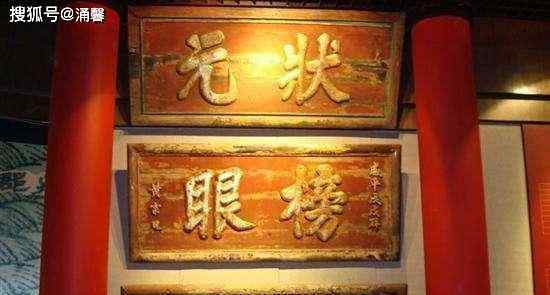 搜狐号@涌馨
狀元
榜眼